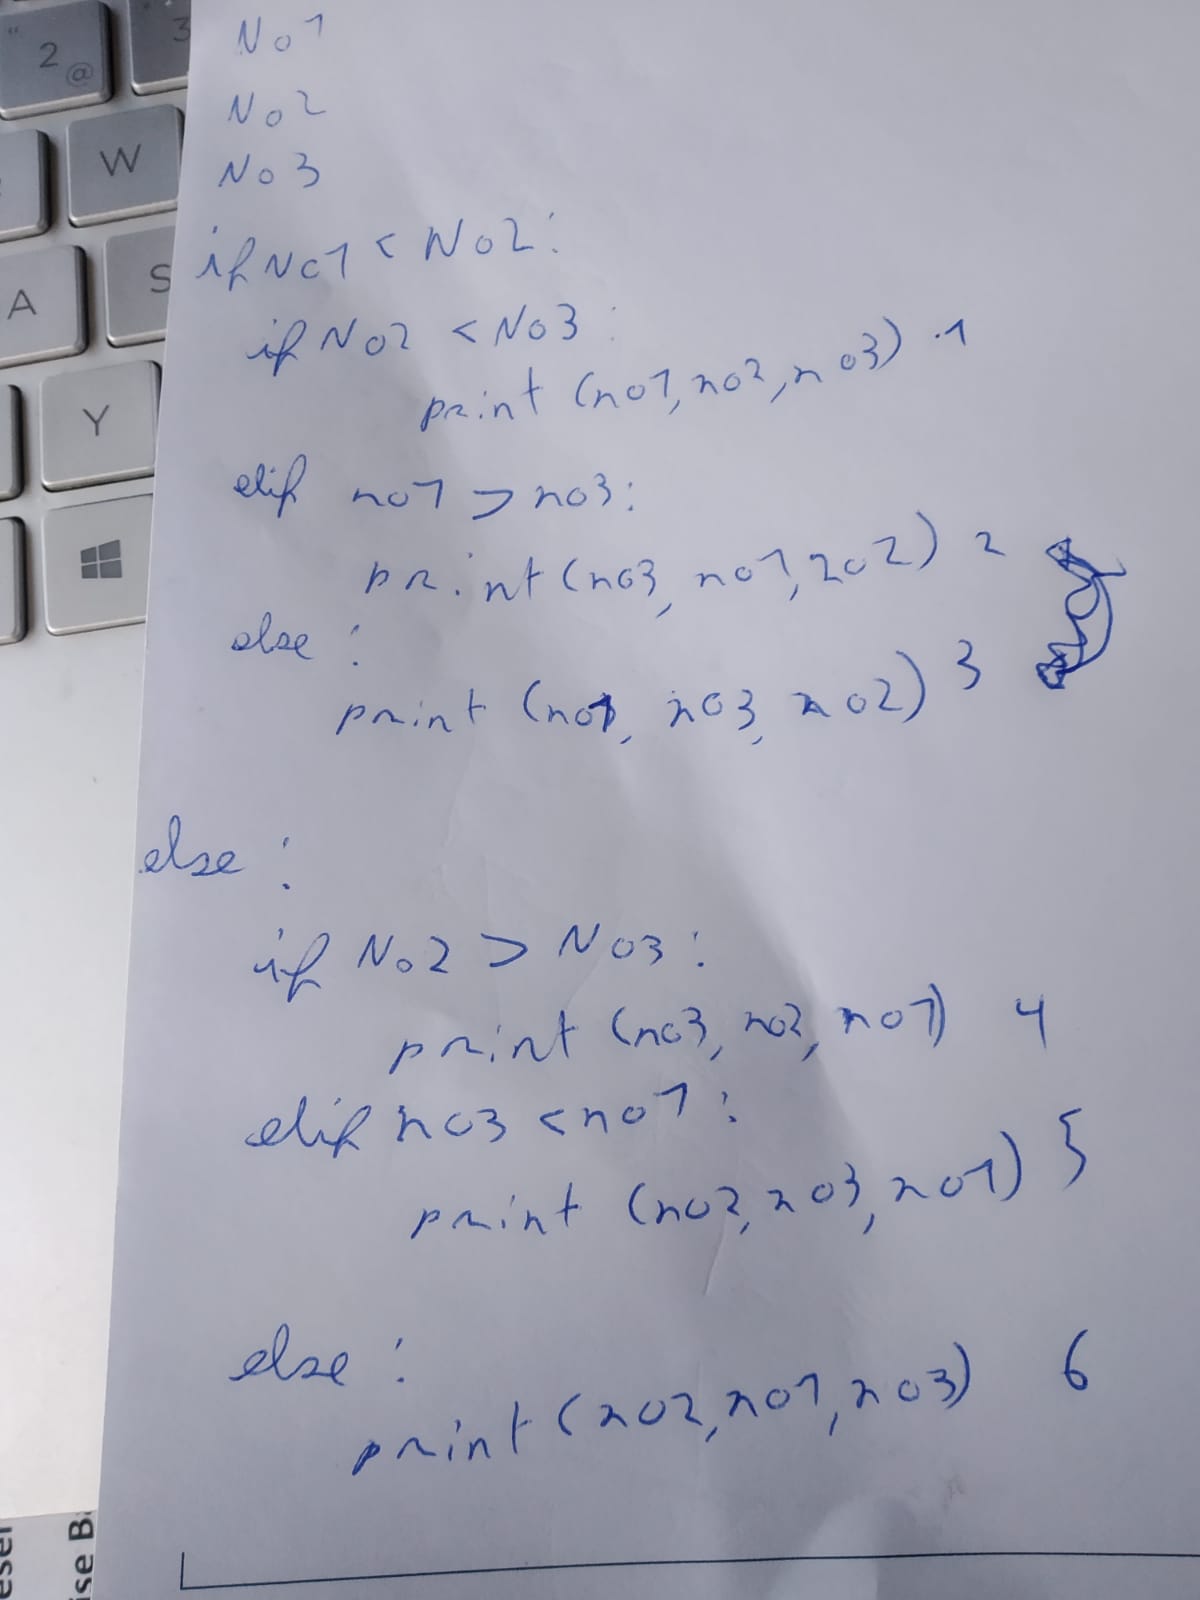 No1
No2
No3
if No1 < No2:
if No2 < No3:
print (no1, no2, no3) 1
elif no1 > no3:
print (no3, no1, no2) 2
else:
print (no1, no3, no2) 3
else:
if No2 > No3:
print (no3, no2, no1) 4
elif no3 < no1:
print (no2, no3, no1) 5
else:
print (no2, no1, no3) 6
2
@
3
W
A
S
Y
ise B